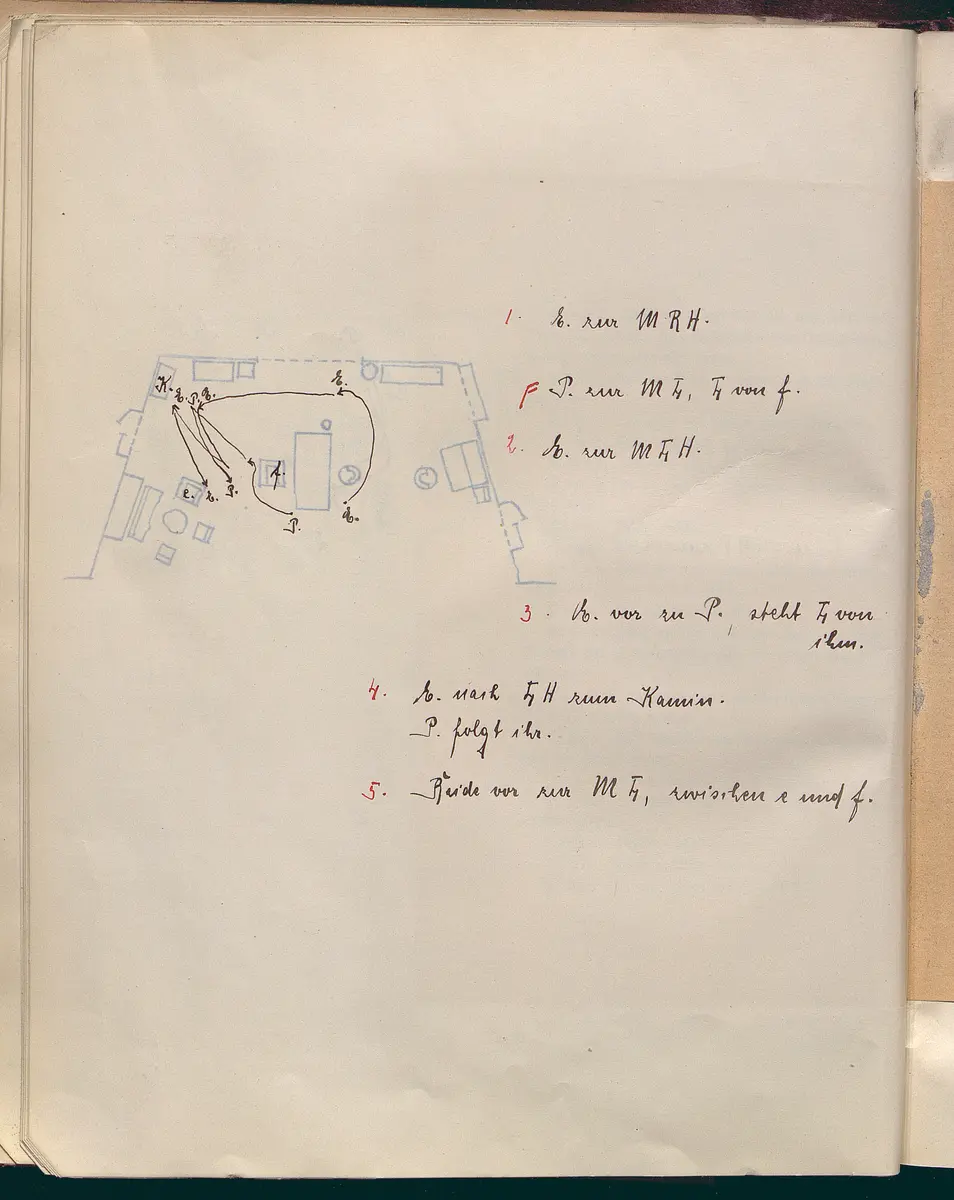 1. E. zur M R H.
F P. zur M L, L von f.
2. E. zur M L H.
K. E. P. E.
E.
f.
e. E. P.
P.
E.
3. E. vor zu P., steht L von
ihm.
4. E. nach L H zum Kamin.
P. folgt ihr.
5. Beide vor zur M L, zwischen e und f.